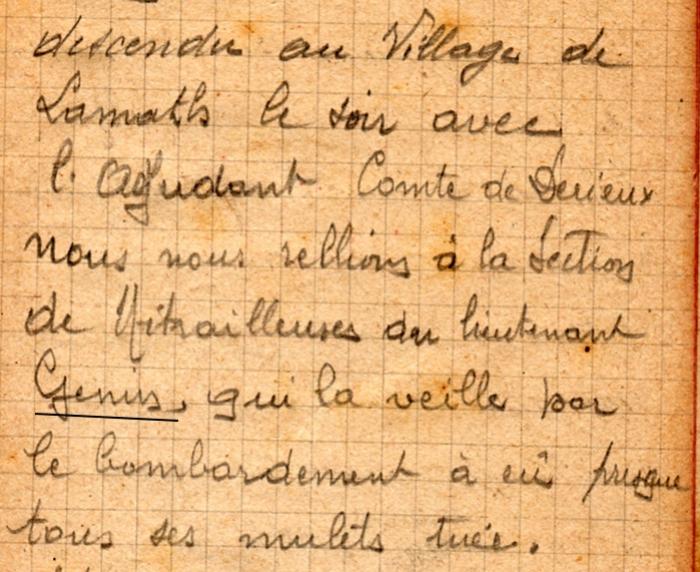 descendu au Village de
Lamath le soir avec
l'Adjudant Comte de Derieux
nous nous rellions à la Section
de Mitrailleuses du lieutenant
qui la veille par
le bombardement à eû presque
tous ses mulets tuée.